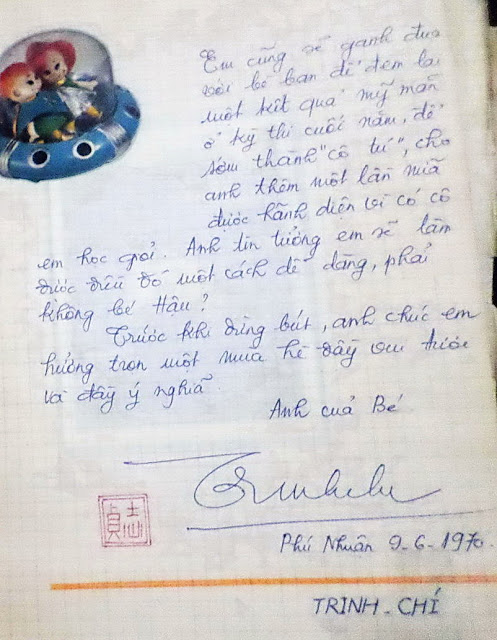 Em cũng sẽ ganh đua
với bè bạn để đem lại
một kết quả mỹ mãn
ở kỳ thi cuối năm, để
sớm thành "cô tú", cho
anh thêm một lần nữa
được hãnh diện vì có cô
em học giỏi. Anh tin tưởng em sẽ làm
được điều đó một cách dễ dàng, phải
không bé Hậu?
Trước khi dừng bút, anh chúc em
hưởng trọn một mùa hè đầy vui tươi
và đầy ý nghĩa.
Anh của Bé
貞志
Phú Nhuận 9-6-1970.
TRINH-CHÍ